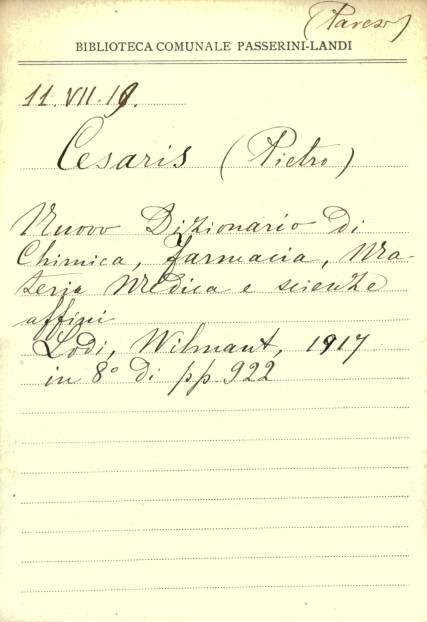 BIBLIOTECA COMUNALE PASSERINI-LANDI
11. VII. 19.
Cesaris (Pietro)
Nuovo Dizionario di
Chimica, farmacia, Ma-
teria Medica e scienze
affini
Lodi, Wilmant, 1917
in 8° di pp. 922